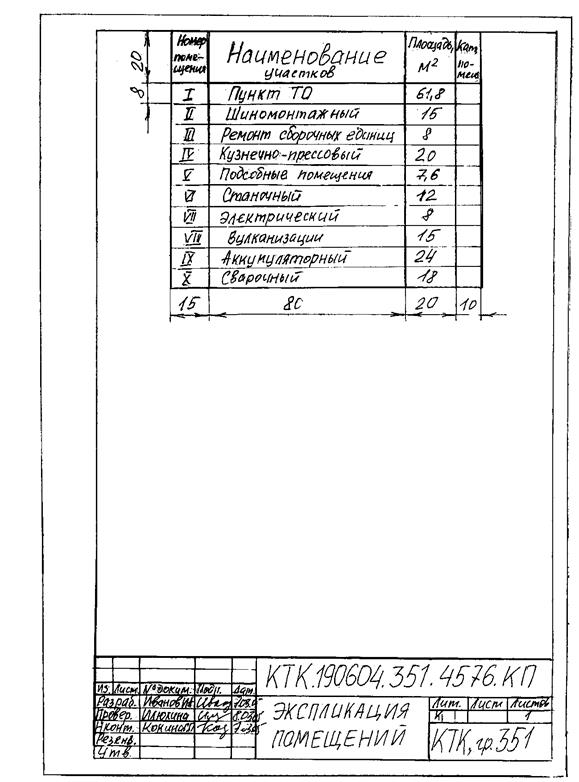 Номер помещения Наименование участков Площадь, М² Кат. помещ
I Пункт ТО 61,8
II Шиномонтажный 15
III Ремонт сборочных единиц 8
IV Кузнечно-прессовый 20
V Подсобные помещения 7,6
VI Станочный 12
VII Электрический 8
VIII Вулканизации 15
IX Аккумуляторный 24
X Сварочный 18
20
8
15 80 20 10
КТК.190604.351.4576.КП
Из. Лист. № докум. Подп. Дат.
Разраб. Иванов
Провер. Илюхина
Н.конт. Кокина
Резенв.
Утв.
ЭКСПЛИКАЦИЯ
ПОМЕЩЕНИЙ
Лит. Лист Листов
К 1
КТК, гр.351